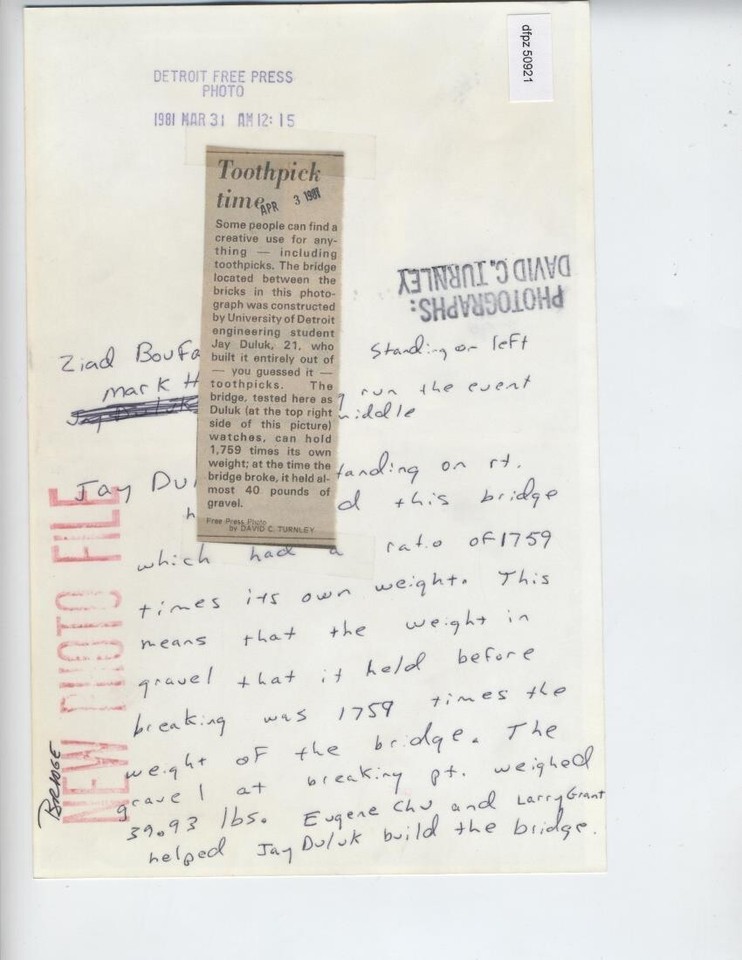 dfpz 50921
DETROIT FREE PRESS
PHOTO
1981 MAR 31 AM 12:15
Toothpick
time
APR 3 1981
Some people can find a
creative use for any-
thing — including
toothpicks. The bridge
located between the
bricks in this photo-
graph was constructed
by University of Detroit
engineering student
Jay Duluk, 21, who
built it entirely out of
— you guessed it —
toothpicks. The
bridge, tested here as
Duluk (at the top right
side of this picture)
watches, can hold
1,759 times its own
weight; at the time the
bridge broke, it held al-
most 40 pounds of
gravel.
Free Press Photo
by DAVID C. TURNLEY
PHOTOGRAPHS:
DAVID C. TURNLEY
Ziad Boufa standing on left
Mark H run the event
Jay Duluk middle
Jay Dul tanding on rt.
h d this bridge
which had a ratio of 1759
times its own weight. This
means that the weight in
gravel that it held before
breaking was 1759 times the
weight of the bridge. The
gravel at breaking pt. weighed
39.93 lbs. Eugene Chu and Larry Grant
helped Jay Duluk build the bridge.
NEW PHOTO FILE
BRIDGE